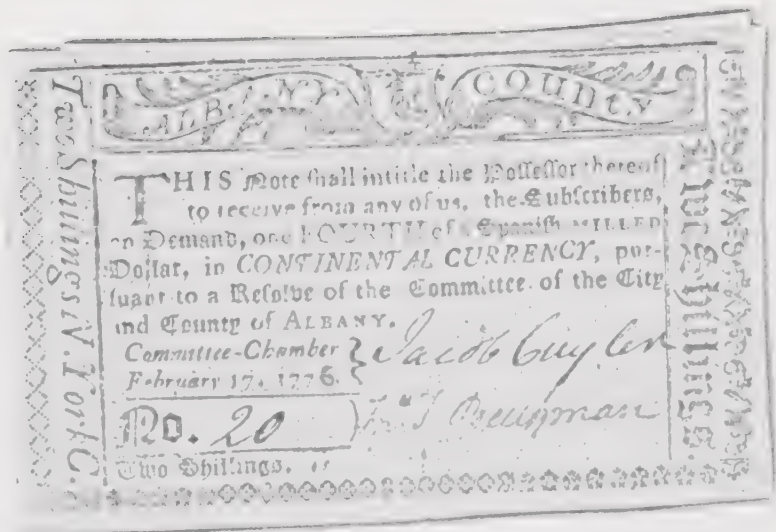 ALBANY COUNTY
THIS Note ſhall intitle the Poſſeſſor thereof
to receive from any of us, the Subſcribers,
on Demand, one FOURTH of a Spaniſh MILLED
Dollar, in CONTINENTAL CURRENCY, pur-
ſuant to a Reſolve of the Committee of the City
and County of ALBANY.
Committee-Chamber
February 17, 1776.
Jacob Cuyler
No. 20
Two Shillings.
Two Shillings N. York C.
Two Shillings.